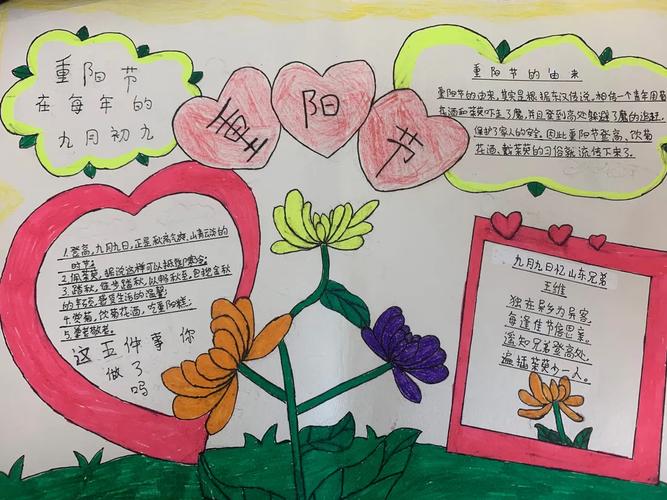 重阳节
在每年的
九月初九
重阳节
重阳节的由来
重阳节的由来,其实是根据东汉传说,相传一个青年用菊
花酒和茱萸吓走了魔,并且登到高处躲避了魔的追赶,
保护了家人的安全。因此重阳节登高、饮菊
花酒、戴茱萸的习俗就流传下来了。
1.登高,九月九日,正是秋高气爽,山青云淡的
时节;
2.佩茱萸,据说这样可以抵御寒冷;
3.踏秋,徒步踏秋,以畅秋意,包揽金秋
的丰硕,要是生活的温馨
4.赏菊,饮菊花酒,吃重阳糕;
5.要老敬老。
这五件事你
做了
吗
九月九日忆山东兄弟
王维
独在异乡为异客,
每逢佳节倍思亲。
遥知兄弟登高处,
遍插茱萸少一人。